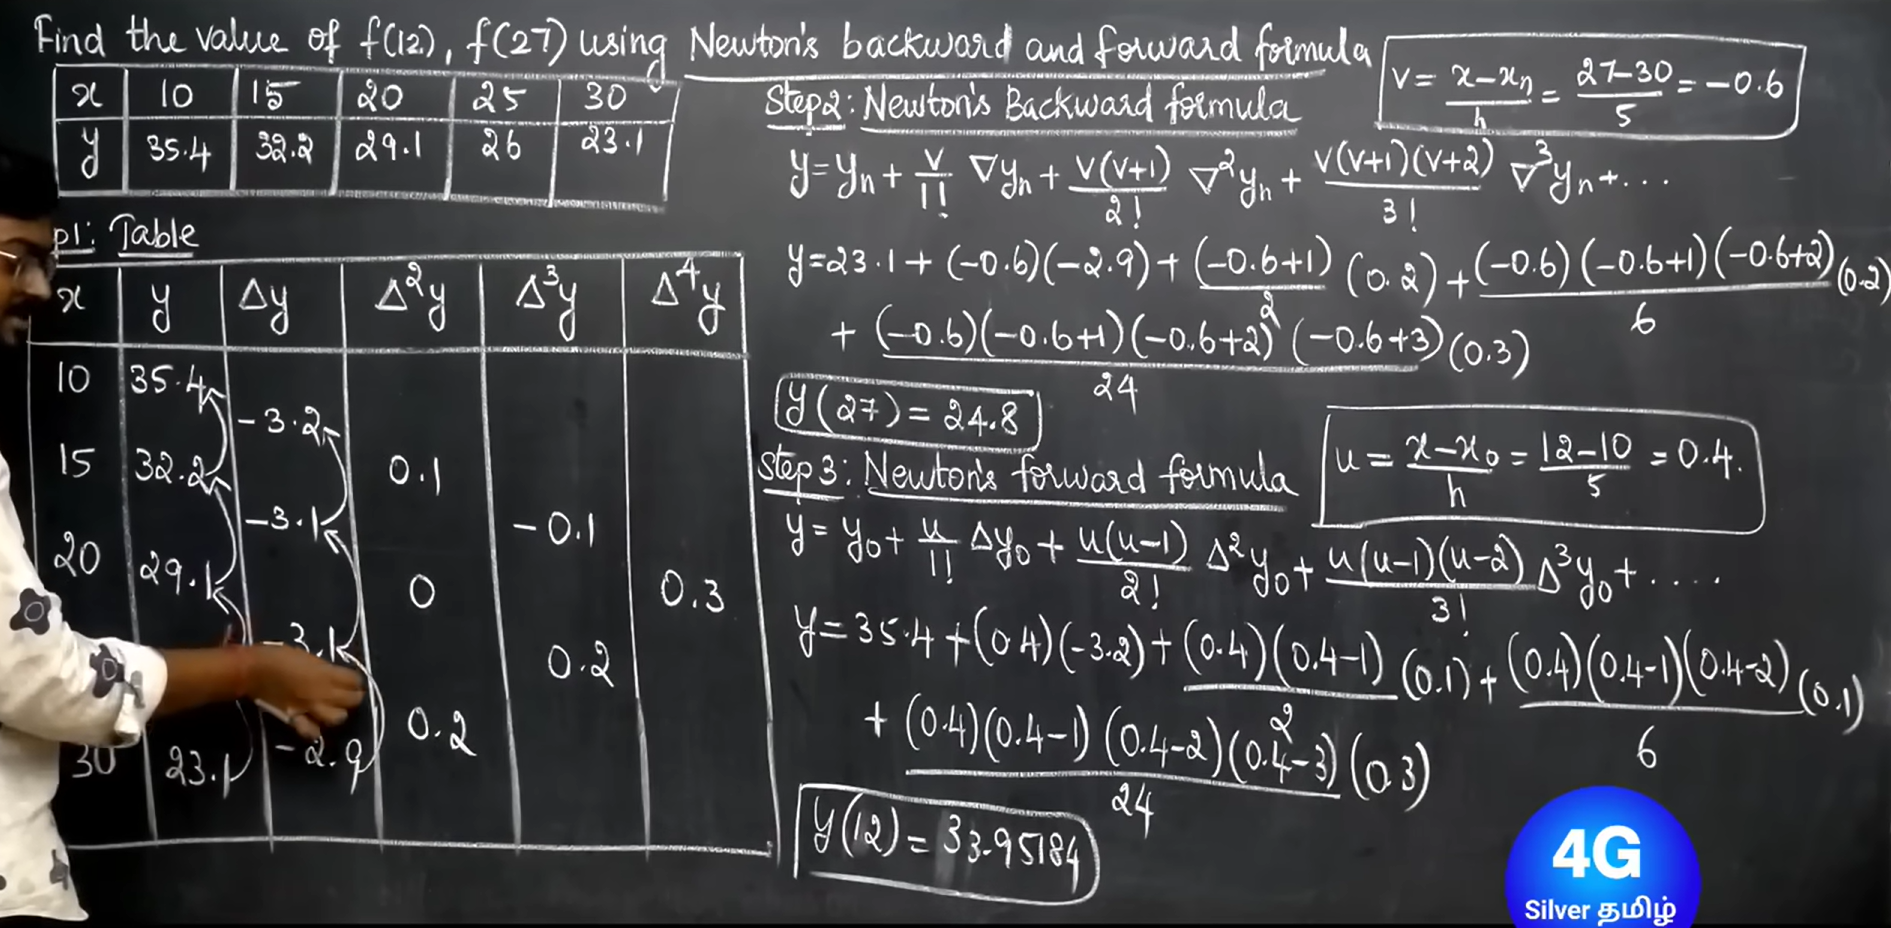 Find the value of f(12), f(27) using Newton's backward and forward formula
x 10 15 20 25 30
y 35.4 32.2 29.1 26 23.1
p1: Table
x y Δy Δ²y Δ³y Δ⁴y
10 35.4
-3.2
15 32.2 0.1
-3.1 -0.1
20 29.1 0 0.3
-3.1 0.2
0.2
-2.9
30 23.1
v = (x-xₙ)/h = (27-30)/5 = -0.6
Step2: Newton's Backward formula
y = yₙ + v/1! ∇yₙ + v(v+1)/2! ∇²yₙ + v(v+1)(v+2)/3! ∇³yₙ + ...
y = 23.1 + (-0.6)(-2.9) + (-0.6+1)/2 (0.2) + (-0.6)(-0.6+1)(-0.6+2)/6 (0.2)
+ (-0.6)(-0.6+1)(-0.6+2)(-0.6+3)/24 (0.3)
y(27) = 24.8
Step 3: Newton's forward formula
u = (x-x₀)/h = (12-10)/5 = 0.4.
y = y₀ + u/1! Δy₀ + u(u-1)/2! Δ²y₀ + u(u-1)(u-2)/3! Δ³y₀ + ....
y = 35.4 + (0.4)(-3.2) + (0.4)(0.4-1)/2 (0.1) + (0.4)(0.4-1)(0.4-2)/6 (0.1)
+ (0.4)(0.4-1)(0.4-2)(0.4-3)/24 (0.3)
y(12) = 33.95184
4G
Silver தமிழ்